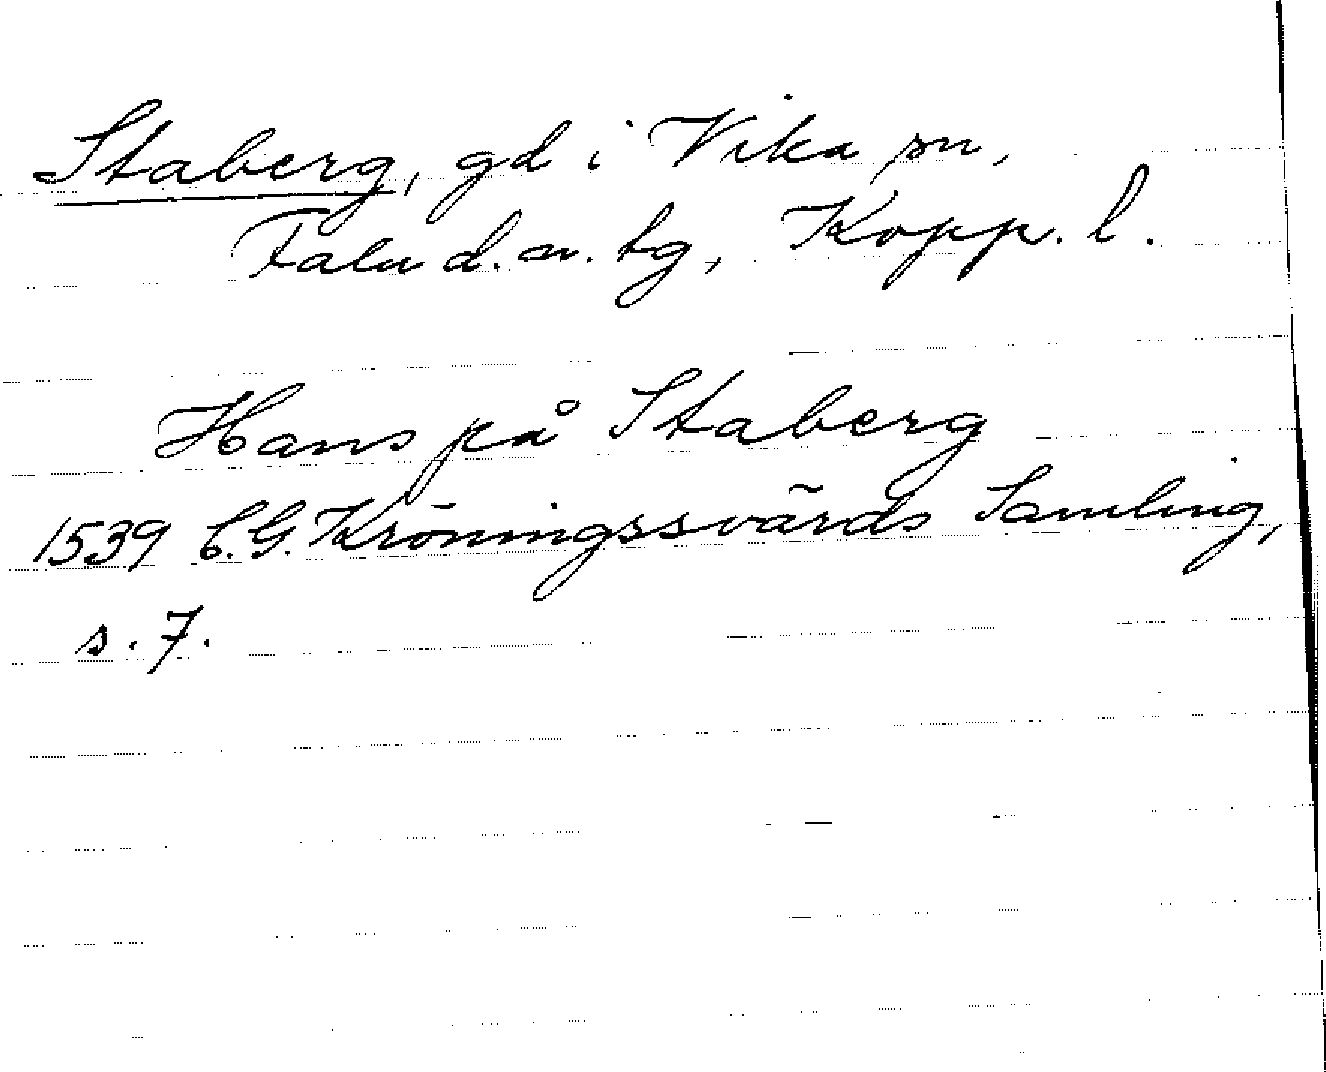 Staberg, gd i Vika sn,
Falu d. s. tg, Kopp. l.
Hans på Staberg
1539 C.G. Kröningssvärds Samling,
s. 7.